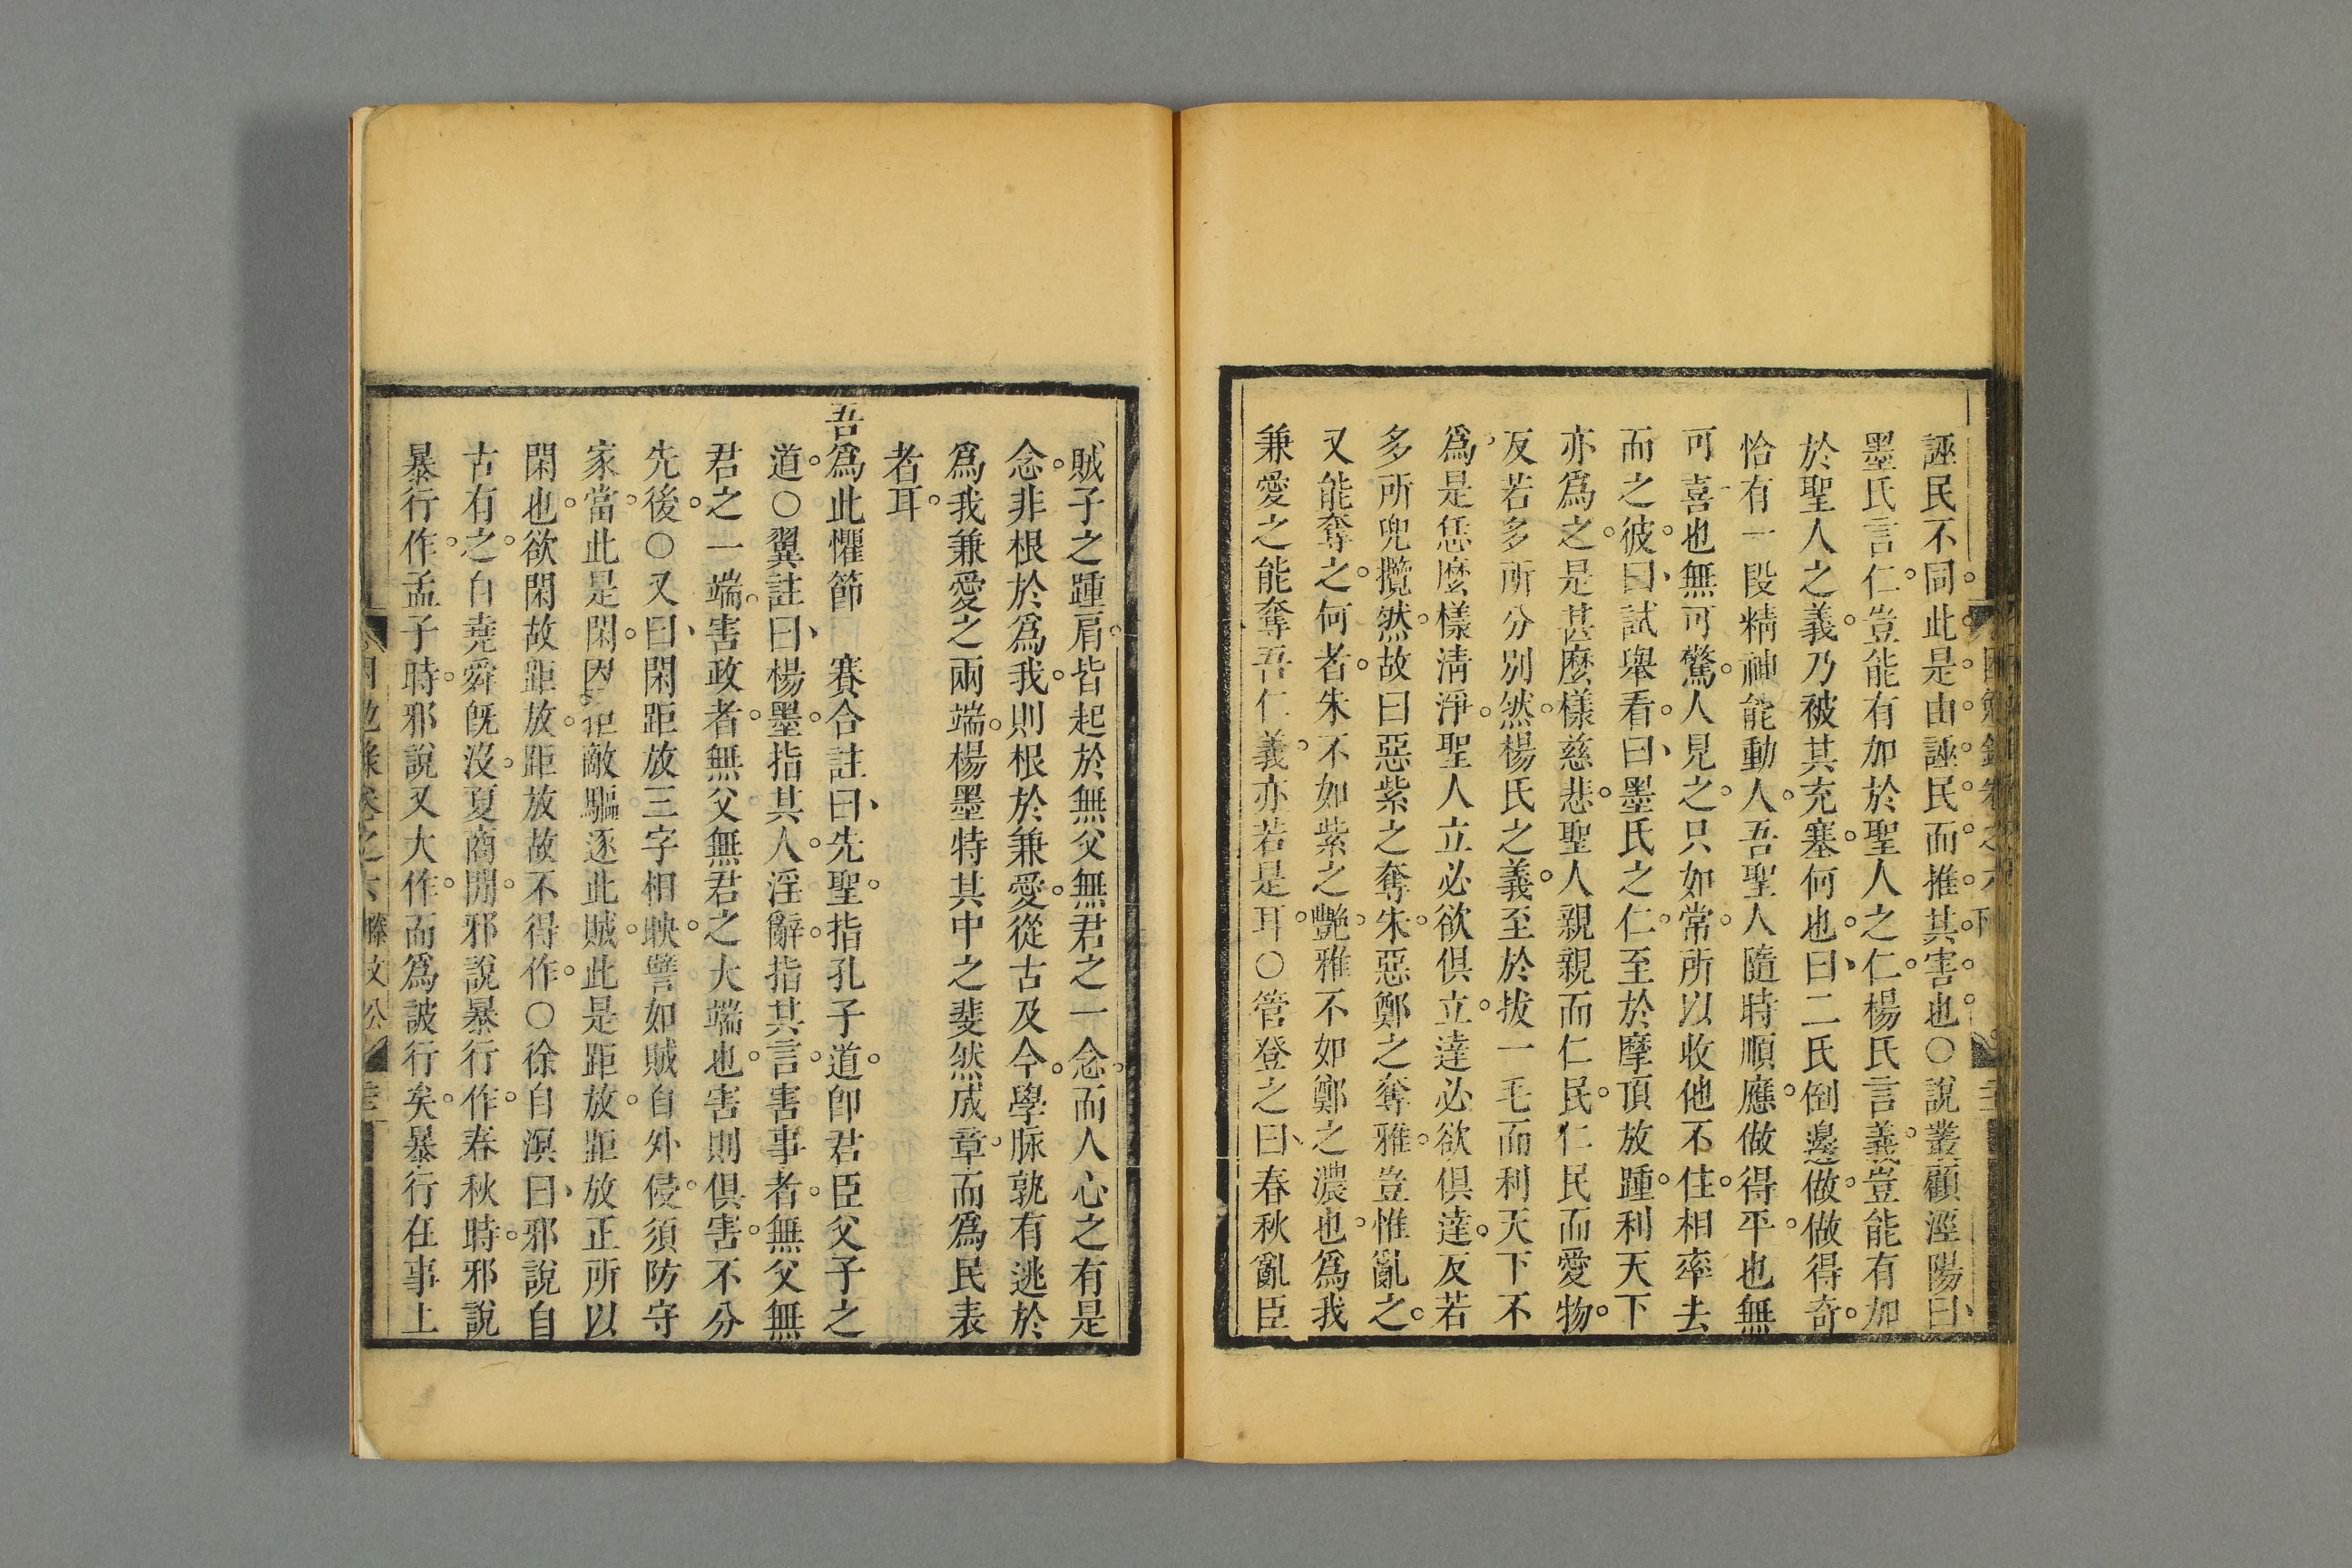 誣民不同此是由誣民而推其害也○說叢顧涇陽曰
墨氏言仁豈能有加於聖人之仁楊氏言義豈能有加
於聖人之義乃被其充塞何也曰二氏倒邊做做得奇
恰有一段精神能動人吾聖人隨時順應做得平也無
可喜也無可驚人見之只如常所以收他不住相率去
而之彼曰試舉看曰墨氏之仁至於摩頂放踵利天下
亦爲之是甚麼樣慈悲聖人親親而仁民仁民而愛物
反若多所分別然楊氏之義至於拔一毛而利天下不
爲是恁麼樣淸淨聖人立必欲俱立達必欲俱達反若
多所兜攬然故曰惡紫之奪朱惡鄭之奪雅豈惟亂之
又能奪之何者朱不如紫之艷雅不如鄭之濃也爲我
兼愛之能奪吾仁義亦若是耳○管登之曰春秋亂臣
賊子之踵肩皆起於無父無君之一念而人心之有是
念非根於爲我則根於兼愛從古及今學脉孰有逃於
爲我兼愛之兩端楊墨特其中之斐然成章而爲民表
者耳
吾爲此懼節 賽合註曰先聖指孔子道卽君臣父子之
道○翼註曰楊墨指其人淫辭指其言害事者無父無
君之一端害政者無父無君之大端也害則俱害不分
先後○又曰閑距放三字相映譬如賊自外侵須防守
家當此是閑因拒敵驅逐此賊此是距放距放正所以
閑也欲閑故距放距放故不得作○徐自溟曰邪說自
古有之自堯舜旣沒夏商間邪說暴行作春秋時邪說
暴行作孟子時邪說又大作而爲詖行矣暴行在事上
卷之六 滕文公